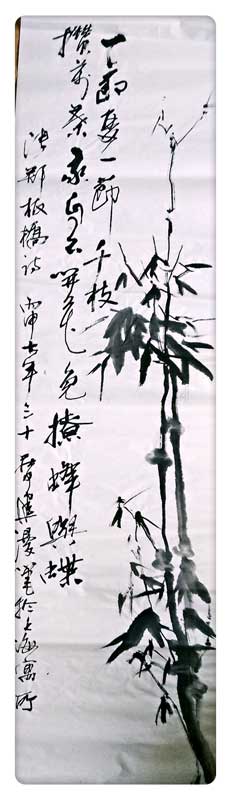 一節复一節千枝
攢萬葉我自不開花免撩蜂與蝶
鄭板橋詩 丙申年三十漫筆於上海寓所